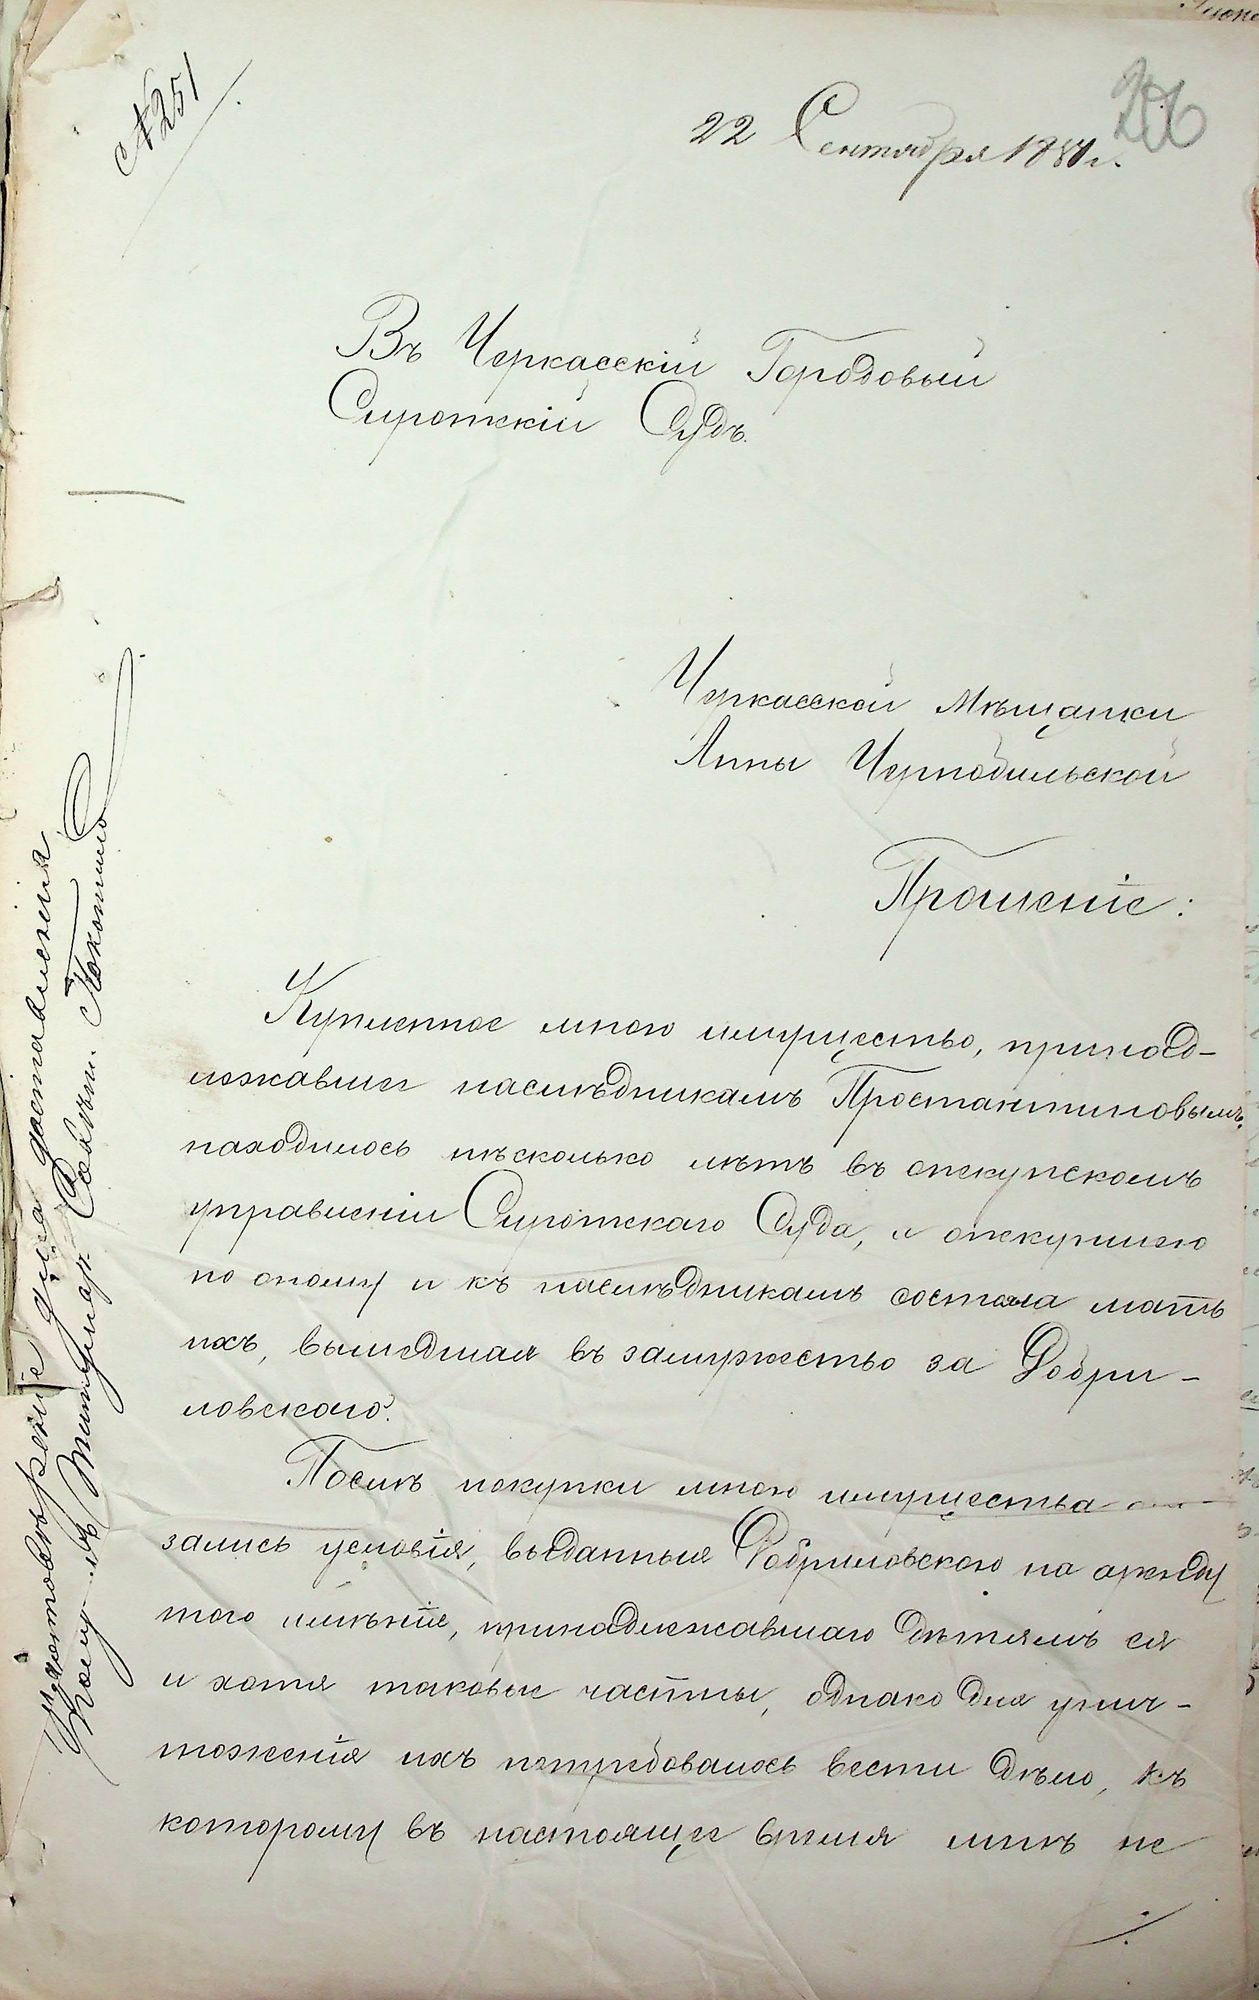 № 251
22 Сентября 188 г.
Въ Черкасскій Городовый
Сиротскій Судъ.
Черкасской Мѣщанки
Анны Чернобильской
Прошеніе:
Купленное мною имущество, принад-
лежавшее наслѣдникамъ Простантиновымъ,
находилось нѣсколько лѣтъ въ опекунскомъ
управленіи Сиротскаго Суда, и опекуншею
по оному и къ наслѣдникамъ состояла мать
ихъ, вышедшая въ замужество за Добри-
ловскаго.
Послѣ покупки мною имущества ока-
зались условія, выданныя Добриловскою на аренду
того имѣнія, принадлежавшаго дѣтямъ ея
и хотя таковые частны, однако для унич-
тоженія ихъ потребовалось вести дѣло, къ
которому въ настоящее время мнѣ не
Удостовѣреніе для доставленія
Титуляр. Совѣтн.